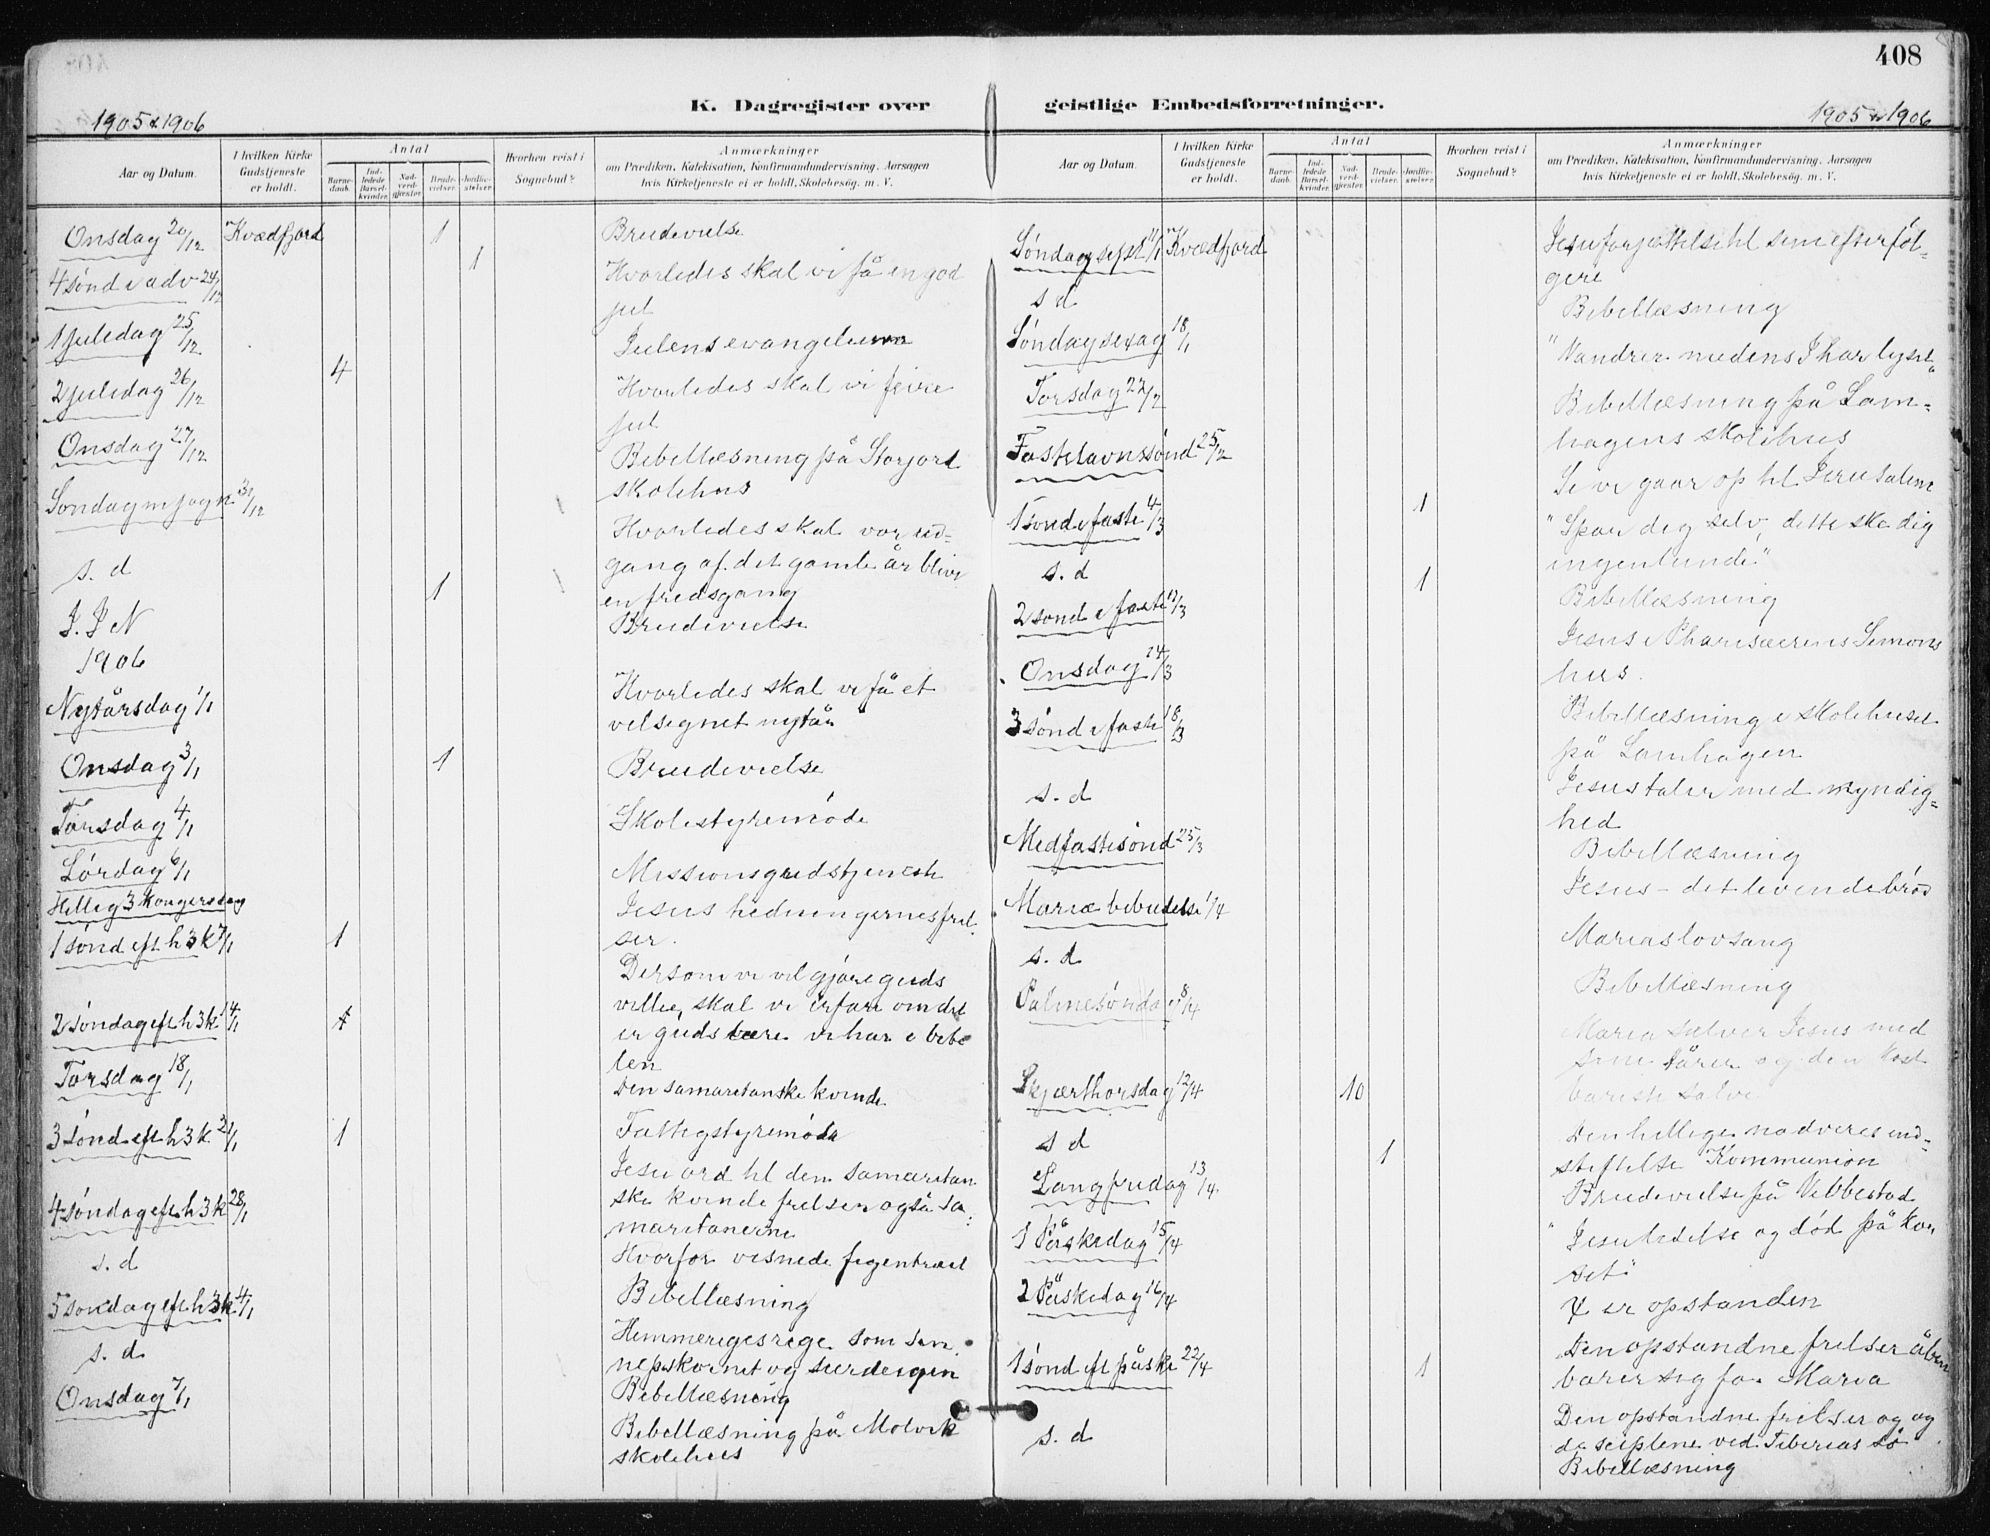 408
K. Dagregister over geistlige Embedsforretninger.
1905 & 1906
1905 & 1906
Aar og Datum.
I hvilken Kirke Gudstjeneste er holdt.
Antal
Barne-daab.
Ind-ledede Barsel-kvinder.
Nad-verd-gjester.
Brude-vielser.
Jordfæ-stelser.
Hvorhen reist i Sognebud?
Anmærkninger
om Prædiken, Katekisation, Konfirmandundervisning. Aarsagen
hvis Kirketjeneste ei er holdt, Skolebesøg. m. V.
Onsdag 20/12 Kvædfjord 1 Brudevielse
4 sønd i adv 24/12 1 Hvorledes skal vi få en god
jul
1 juledag 25/12 Julens evangelium
2 juledag 26/12 4 Hvorledes skal vi feire
jul
Onsdag 27/12 Bibellæsning på Storjord
skolehus
Søndag m jog n 31/12 Hvorledes skal vor ud-
gang af det gamle år blive
en fredsgang
s. d 1 Brudevielse
I. J N
1906
Nytårsdag 1/1 Hvorledes skal vi få et
velsignet nytår
Onsdag 3/1 1 Brudevielse
Torsdag 4/1 Skolestyremöde
Lørdag 6/1 Missionsgudstjeneste
Hellig 3 kongersdag Jesus hedningernes frel-
ser.
1 sønd eft h 3 k 7/1 1 Dersom vi vil gjøre guds
villie, skal vi erfare om det
er guds lære vi har i bibe
len
2 søndag eft h 3 k 14/1 1 Den samaritanske kvinde
Torsdag 18/1 Fattigstyremöde
3 sønd eft h 3 k 21/1 1 Jesu ord til den samaritan
ske kvinde frelser også sa-
maritanerne
4 søndag eft h 3 k 28/1 Hvorfor visnede figentræet
s. d Bibellæsning
5 søndag eft h 3 k 4/1 Himmeriges rige som sen
nepskornet og surdeigen
s. d Bibellæsning
Onsdag 7/1 Bibellæsning på Molvik
skolehus
Aar og Datum.
I hvilken Kirke Gudstjeneste er holdt.
Antal
Barne-daab.
Ind-ledede Barsel-kvinder.
Nad-verd-gjester.
Brude-vielser.
Jordfæ-stelser.
Hvorhen reist i Sognebud?
Anmærkninger
om Prædiken, Katekisation, Konfirmandundervisning. Aarsagen
hvis Kirketjeneste ei er holdt, Skolebesøg. m. V.
Søndag sept 11/1 Kvædfjord Jesu forjættelse til sine efterføl-
gere
s d Bibellæsning
Søndag sexag 18/1 "Vandrer medens I har lyset"
Torsdag 22/2 Bibellæsning på Lam-
hagens skolehus
Fastelavnssønd 25/2 Se vi gaar op til Jerusalem
1 sønd i faste 4/3 1 "Spar dig selv, dette ske dig
ingenlunde"
s. d 1 Bibellæsning
2 sønd i faste 11/3 Jesus i Phariseerens Simons
hus.
Onsdag 14/3 Bibellæsning i skolehuset
på Lamhagen
3 sønd i faste 18/3 Jesus taler med myndig-
hed
s. d Bibellæsning
Midfastesønd 25/3 Jesus - det levende brød
Mariæ bebudelse 1/4 Marias lovsang
s. d Bibellæsning
Palmesøndag 8/4 Maria salver Jesus med
sine tårer og den kost
bareste salve
Skjærthorsdag 12/4 10 Den hellige nadveres ind-
stiftelse Kommunion
s d 1 Brudevielse på Vebbestad
Langfredag 13/4 "Jesu lidelse og död på kor
set"
1 Påskedag 15/4 X er opstanden
2 Påskedag 16/4 Den opstandne frelser åben
barer sig for Maria
1 sønd eft påske 22/4 1 Den opstandne frelser og og
disciplene ved Tiberias sø
s. d Bibellæsning